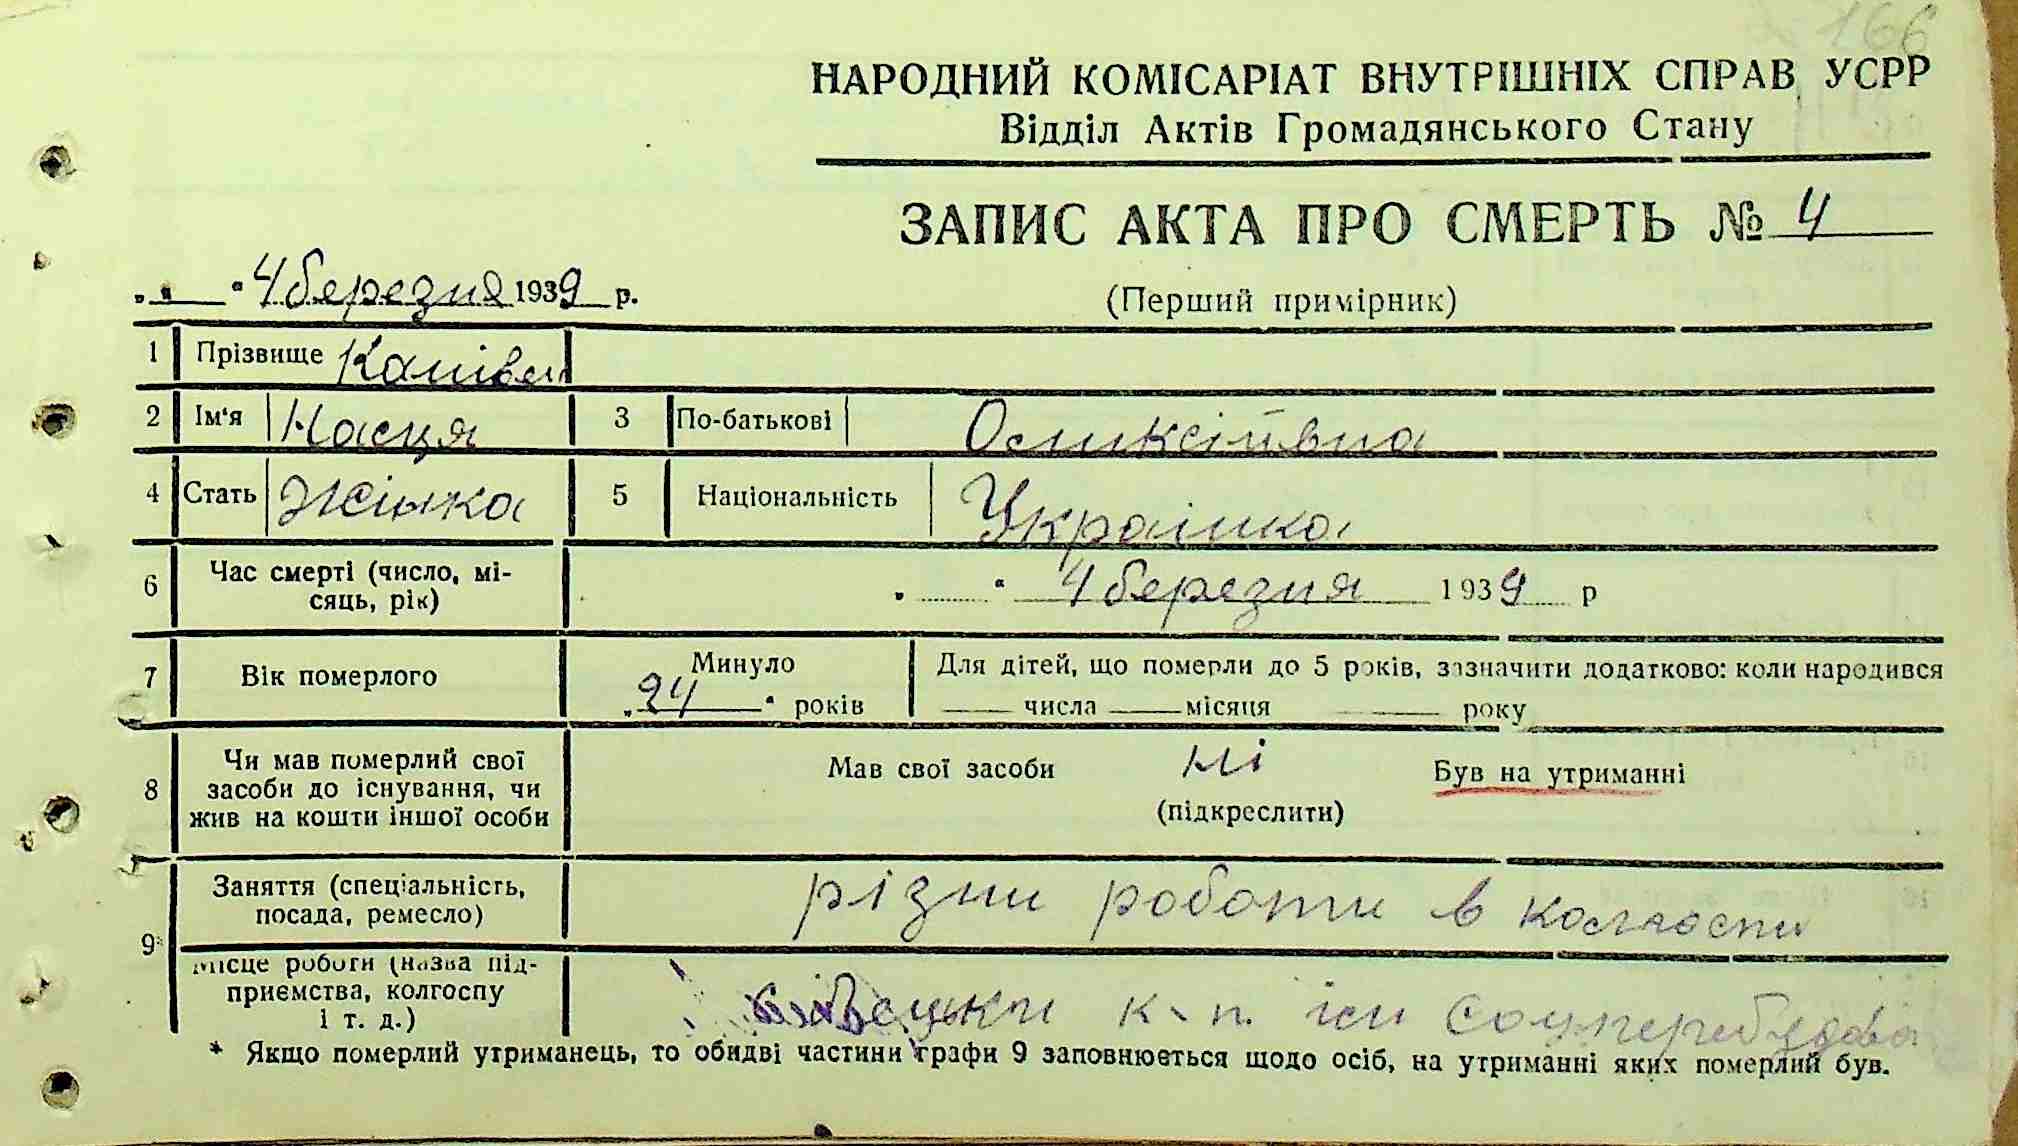 166
НАРОДНИЙ КОМІСАРІАТ ВНУТРІШНІХ СПРАВ УСРР
Відділ Актів Громадянського Стану
ЗАПИС АКТА ПРО СМЕРТЬ № 4
„ “ 4 березня 1939 р.
(Перший примірник)
1 Прізвище
2 Ім'я Насця 3 По-батькові Оликсіївна
4 Стать Жінка 5 Національність Украінка
6 Час смерті (число, мі-
сяць, рік) „ “ 4 березня 1939 р
7 Вік померлого Минуло
„24“ років
Для дітей, що померли до 5 років, зазначити додатково: коли народився
числа місяця року
8 Чи мав померлий свої
засоби до існування, чи
жив на кошти іншої особи
Мав свої засоби ні Був на утриманні
(підкреслити)
9* Заняття (спеціальність,
посада, ремесло) різни роботи в колгоспи
Місце роботи (назва під-
приємства, колгоспу
і т. д.) к. п. ім Соцперебудова
* Якщо померлий утриманець, то обидві частини графи 9 заповнюється щодо осіб, на утриманні яких померлий був.